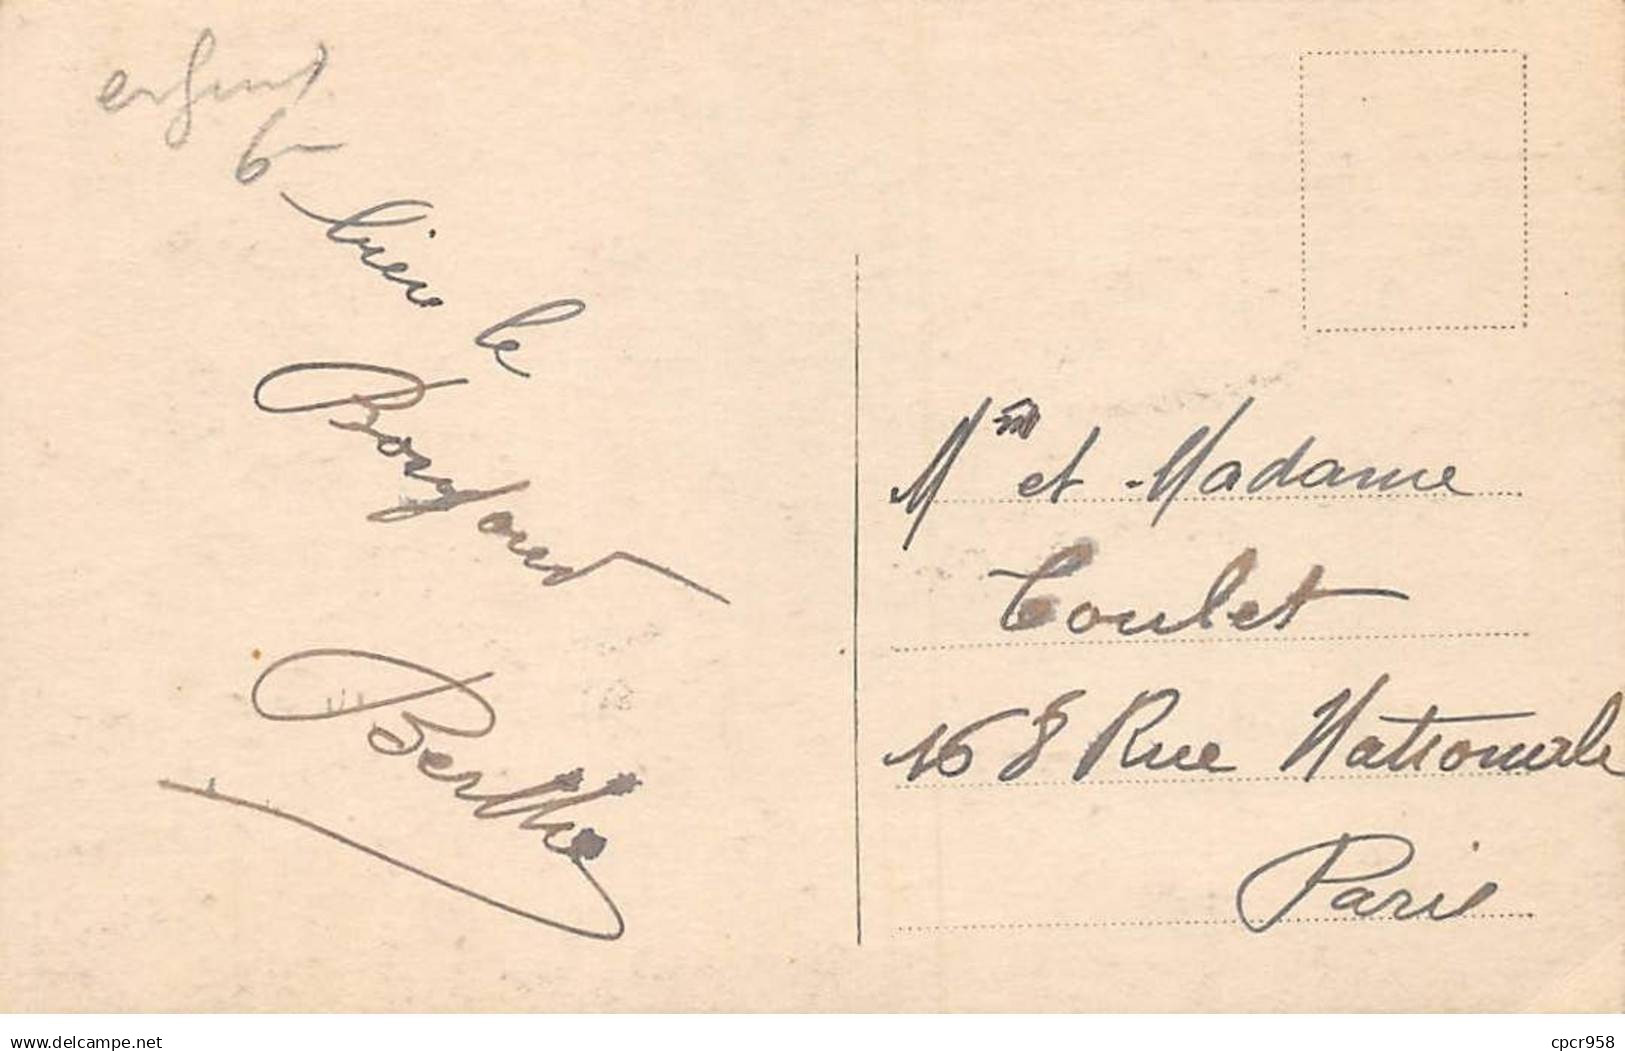 enfant
6-
bien le
Bonjour
Berthe
Mr et Madame
Toulet
168 Rue Nationale
Paris
www.delcampe.net
cpcr958